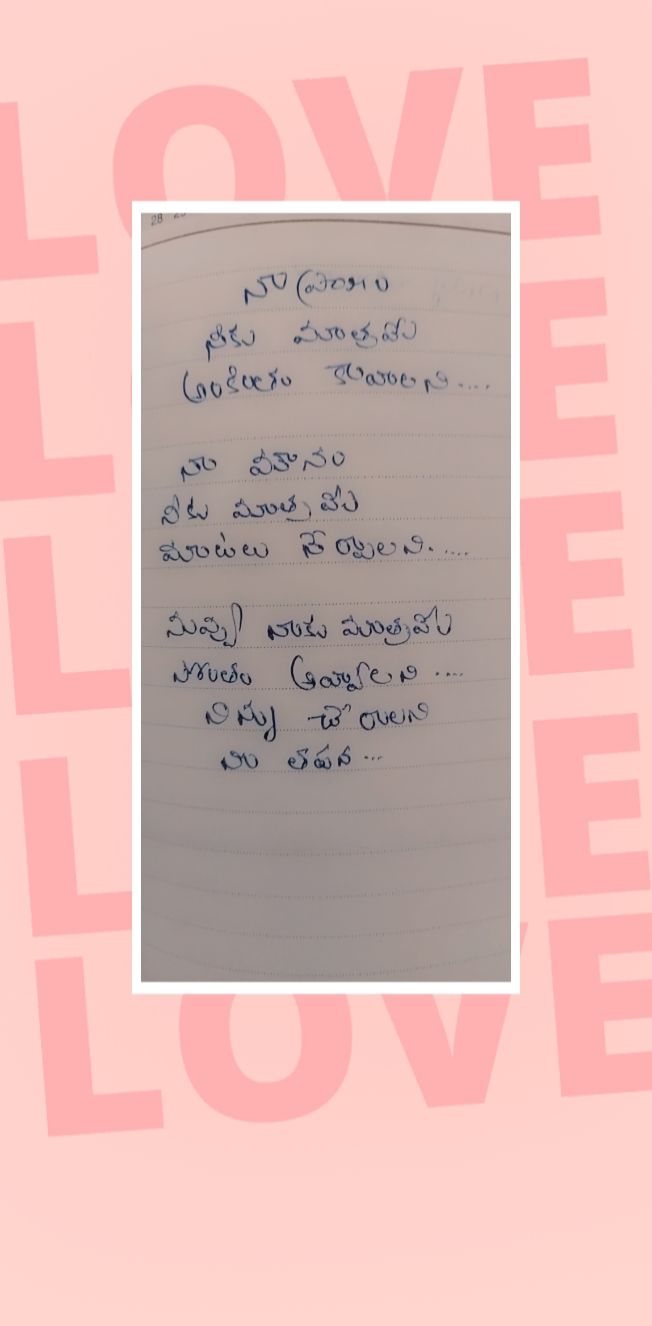 LOVE
LOVE
LOVE
LOVE
LOVE
28
నా ప్రాణం
నీకు మాత్రమే
అంకితం కావాలని....
నా మౌనం
నీకు మాత్రమే
మాటలు నేర్పాలని.....
నువ్వు నాకు మాత్రమే
సొంతం అవ్వాలని ....
నిన్ను చేరాలని
నా తపన ...